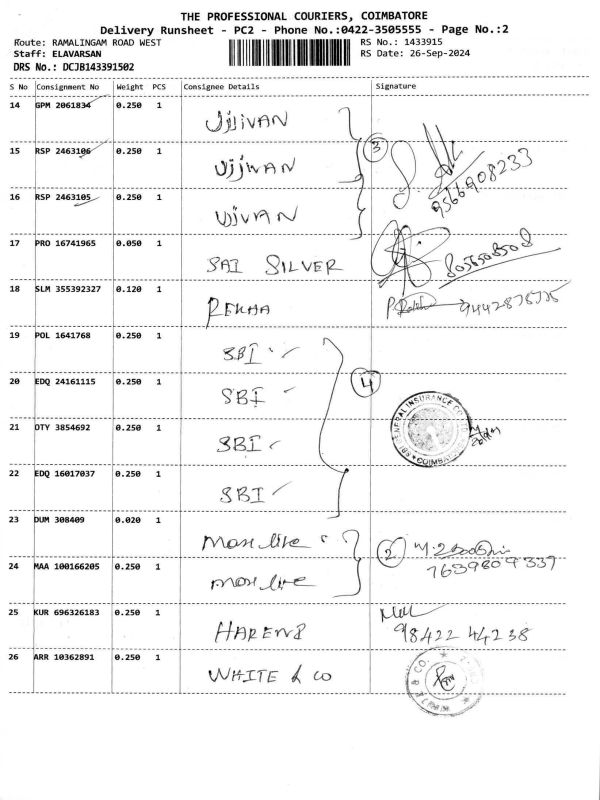 THE PROFESSIONAL COURIERS, COIMBATORE
Delivery Runsheet - PC2 - Phone No.:0422-3505555 - Page No.:2
Route: RAMALINGAM ROAD WEST RS No.: 1433915
Staff: ELAVARSAN RS Date: 26-Sep-2024
DRS No.: DCJB143391502
S No Consignment No Weight PCS Consignee Details Signature
14 GPM 2061834 0.250 1 UJJIVAN
15 RSP 2463106 0.250 1 UJJIVAN 3 9566908233
16 RSP 2463105 0.250 1 UJJVAN
17 PRO 16741965 0.050 1 SAI SILVER 8056508508
18 SLM 355392327 0.120 1 REKHA
19 POL 1641768 0.250 1 SBI
20 EDQ 24161115 0.250 1 SBI 4
21 OTY 3854692 0.250 1 SBI SBI GENERAL INSURANCE CO. COIMBATORE
22 EDQ 16017037 0.250 1 SBI
23 DUM 308409 0.020 1 max life 2
24 MAA 100166205 0.250 1 max life 7639809339
25 KUR 696326183 0.250 1 98422 44238
26 ARR 10362891 0.250 1 WHITE & CO